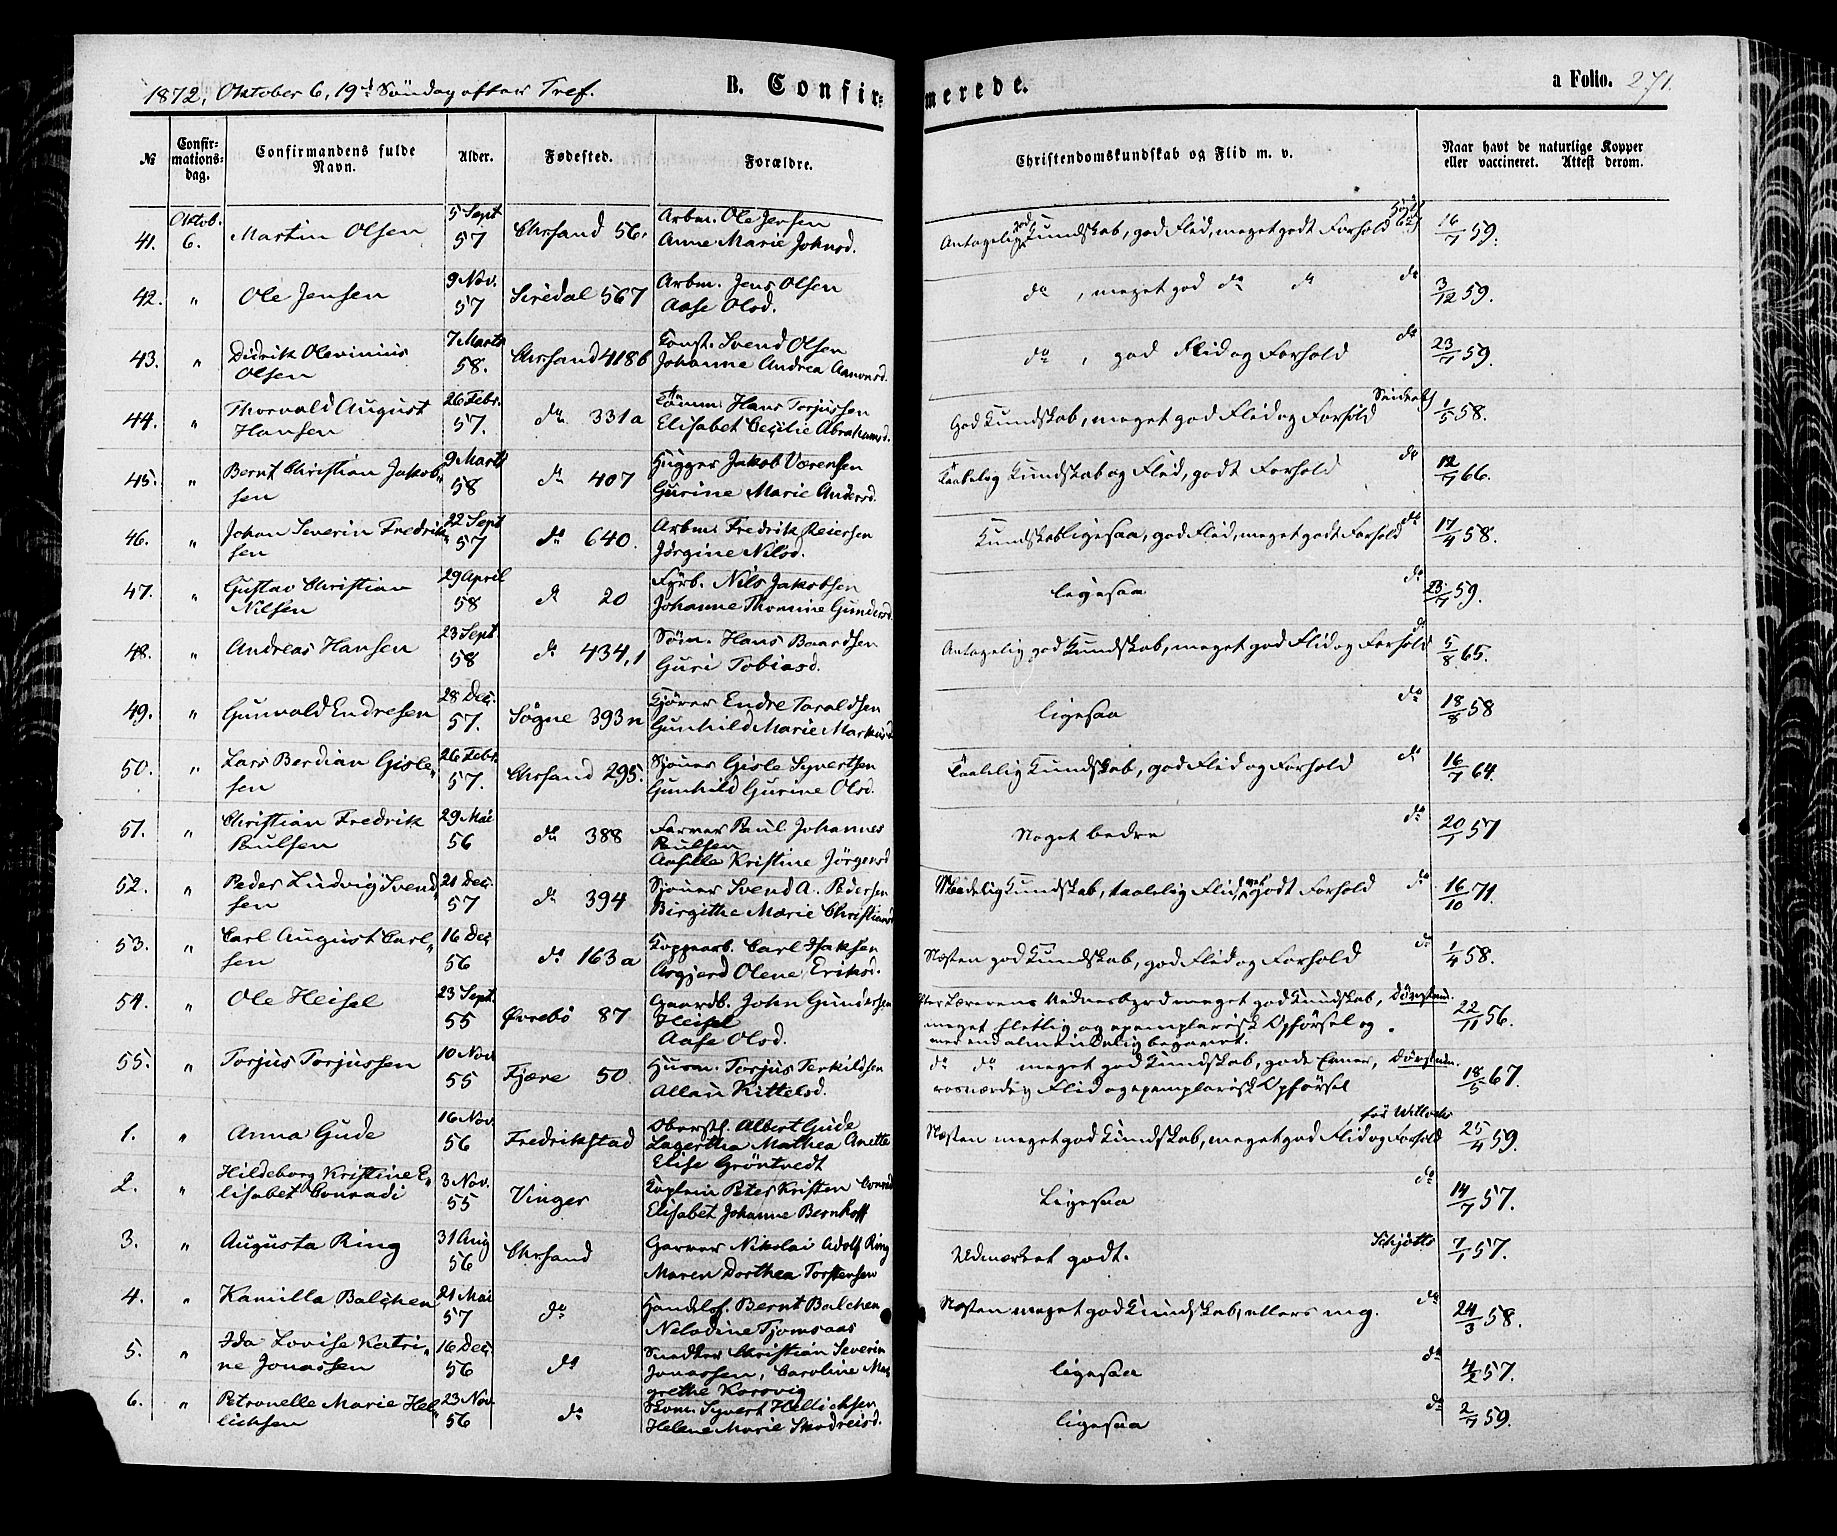 1872, Oktober 6, 19d Søndag efter Tref. B. Confir-merede. a Folio. 271.
№ Confir-mations-dag. Confirmandens fulde Navn. Alder. Fødested. Forældre. Christendomskundskab og Flid m. v. Naar havt de naturlige Kopper eller vaccineret. Attest derom.
41. Oktob. 6. Martin Olsen 5 Sept 57 Chrsand 56. Arbm. Ole Jensen Anne Marie Johnsd. Antagelig god Kundskab, god Flid, meget godt Forhold 16/7 59.
42. " Ole Jensen 9 Nov. 57 Siredal 567 Arbm. Jens Olsen Aase Olsd. do, meget god do do do 3/12 59.
43. " Didrik Olevinius Olsen 7 Marts 58. Chrsand 418b Konst. Svend Olsen Johanne Andrea Aanonsd. do, god Flid og Forhold do 23/7 59.
44. " Thorvald August Hansen 26 Febr. 57. do 331a Tømm. Hans Torjussen Elisabet Cecilie Abrahamsd. God Kundskab, meget god Flid og Forhold 1/5 58.
45. " Bernt Christian Jakobsen 9 Marts 58 do 407 Hugger Jakob Værensen Gurine Marie Andersd. Taalelig Kundskab og Flid, godt Forhold do 12/7 66.
46. " Johan Severin Fredriksen 22 Sept 57 do 640. Arbm. Fredrik Reiersen Jørgine Nilsd. Kundskab ligesaa, god Flid, meget godt Forhold do 17/4 58.
47. " Gustav Christian Nilsen 29 April 58 do 20 Fyrb. Nils Jakobsen Johanne Thomine Gundersd. ligesaa do 23/7 59.
48. " Andreas Hansen 23 Sept 58 do 434,1 Søm. Hans Baardsen Guri Tobiasd. Antagelig god Kundskab, meget god Flid og Forhold do 5/8 65.
49. " Gunvald Endresen 28 Dec. 57. Søgne 393n Kjører Endre Taraldsen Gunhild Marie Markusd ligesaa do 18/8 58
50. " Lars Berdian Gislesen 26 Febr. 57. Chrsand 295. Sjouer Gisle Syvertsen Gunhild Gurine Olsd. Taalelig Kundskab, god Flid og Forhold do 16/7 64.
51. " Christian Fredrik Paulsen 29 Mai 56 do 388 Farver Paul Johannes Paulsen Kristine Jørgensd Noget bedre do 20/1 57
52. " Peder Ludvig Svendsen 21 Dec. 57 do 394 Sjouer Svend A. Pedersen Birgithe Marie Christiansd Maadelig Kundskab, taalelig Flid, godt Forhold do 16/10 71.
53. " Carl August Carlsen 16 Dec 56 do 163a Kopparb. Carl Isaksen Asgjerd Olene Eriksd. Næsten god Kundskab, god Flid og Forhold do 1/4 58.
54. " Ole Heisel 23 Sept. 55 Øvrebø 87 Gaardb. John Gundersen Heisel Aase Olsd. Efter Lærerens Vidnesbyrd meget god Kundskab, Døvstum. meget flittig og exemplarisk Opførsel og med end almindelig begavet. 22/11 56.
55. " Torjus Torjussen 10 Nov 55 Fjære 50. Husm. Torjus Terkildsen Allau Kittelsd. do do meget god Kundskab, gode Evner, Døvstum rosværdig Flid og exemplarisk Opførsel 18/5 67.
1. " Anna Gude 16 Nov 56 Fredrikstad Oberstl. Albert Gude Lagertha Mathea Anette Elise Grøntvedt Næsten meget god Kundskab, meget god Flid og Forhold 25/4 59.
2. " Hildeborg Kristine Elisabet Conradi 3 Nov. 55 Vinger Kaptein Peter Kristen Conradi Elisabet Johanne Bernhoft Ligesaa do 14/7 57.
3. " Augusta Ring 31 Aug 56 Chrsand Garver Nikolai Adolf Ring Maren Dorthea Torstensen Udmærket godt. Schjøtts 7/1 57.
4. " Kamilla Balchen 21 Mai 57 do Handelsf. Bernt Balchen Neladine Tjomsaas Næsten meget god Kundskab, ellers mg. do 24/3 58.
5. " Ida Lovise Katrine Jonassen 16 Dec. 56 do Snedker Christian Severin Jonassen, Caroline Margrethe Korsvig ligesaa do 4/2 57.
6. " Petronelle Marie Hellichsen 23 Nov 56 do Skom. Syvert Hellichsen Helene Marie ligesaa do 2/7 59.